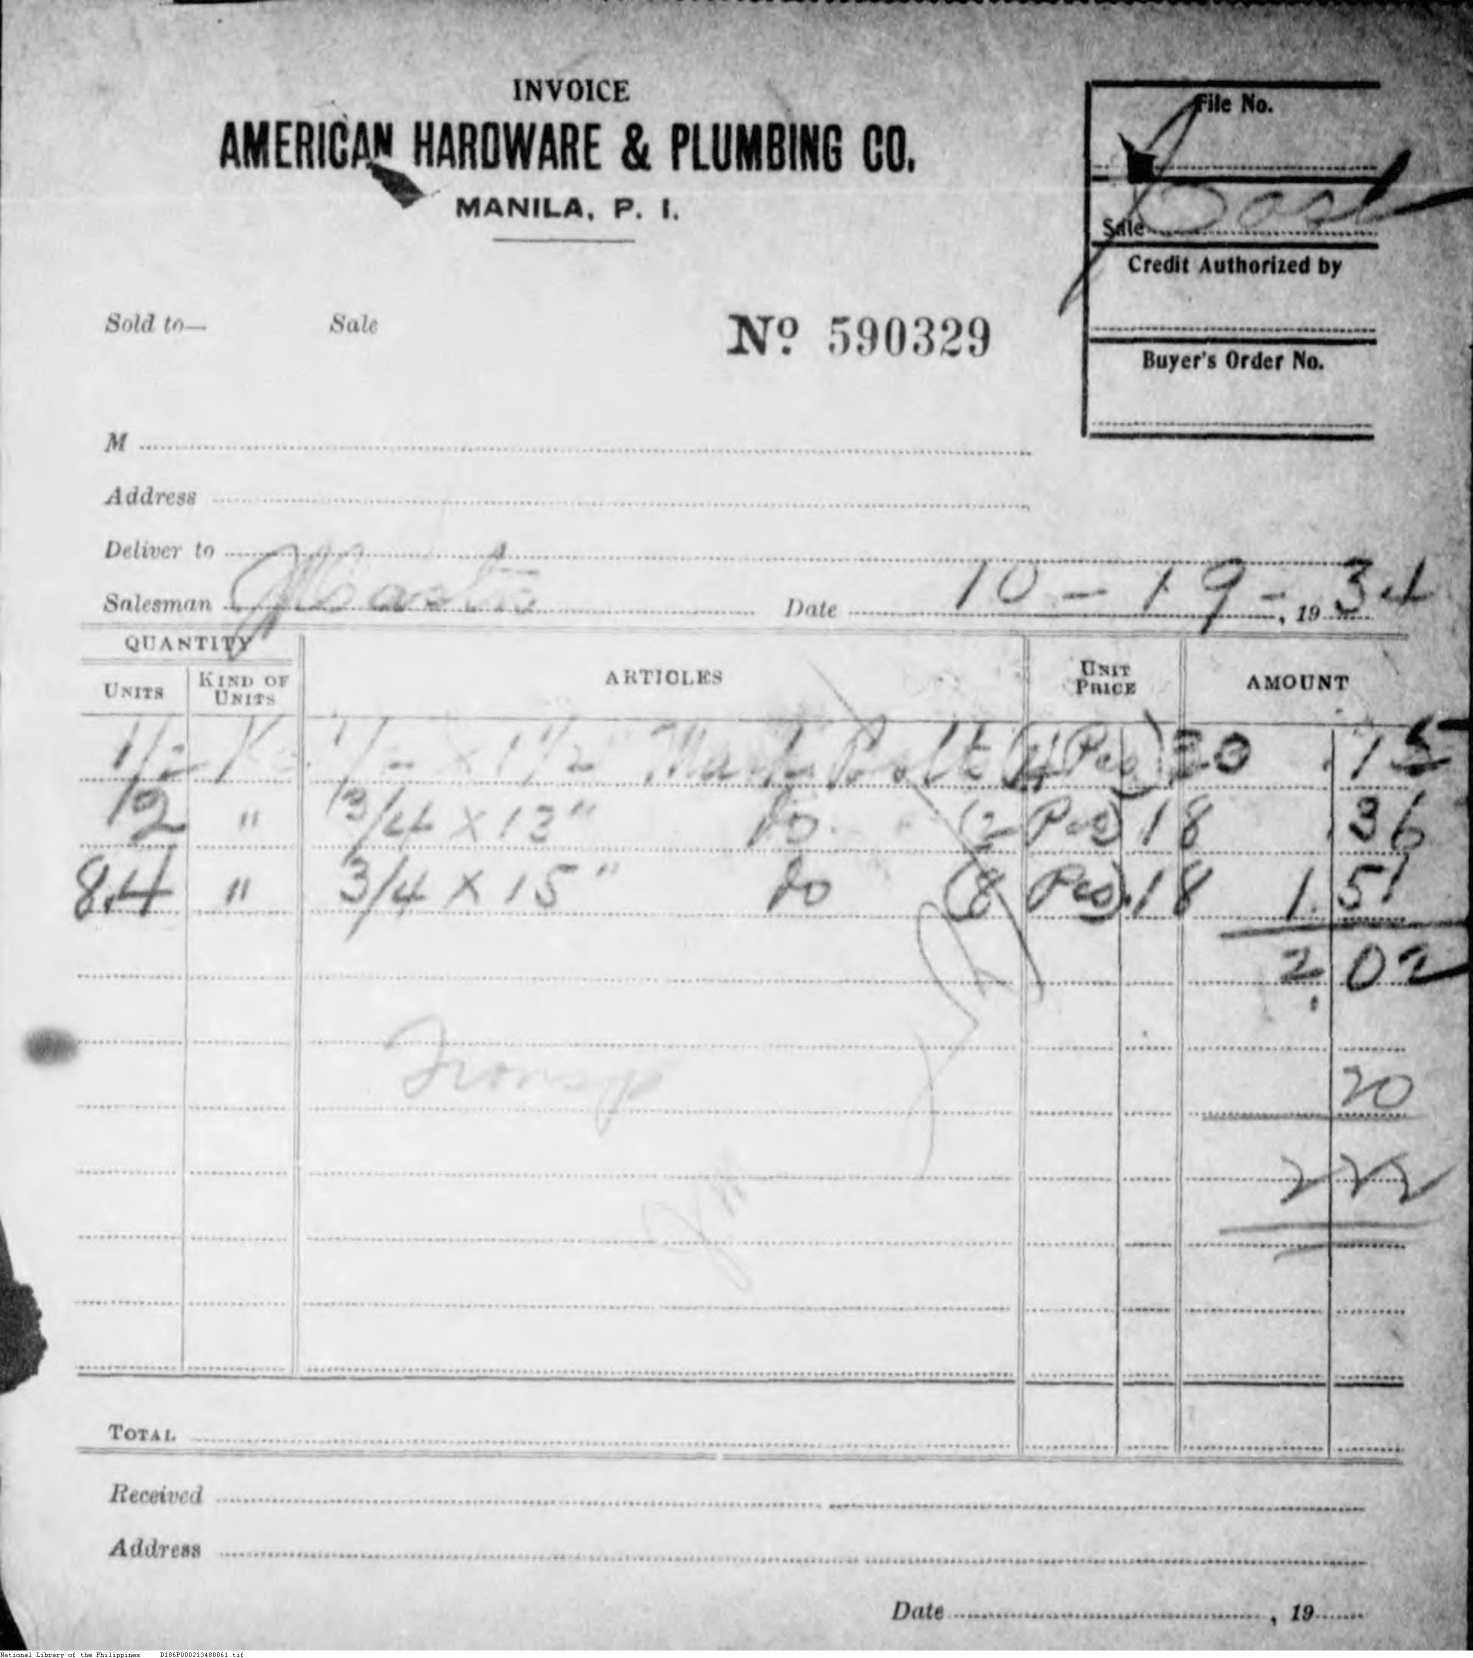 INVOICE
AMERICAN HARDWARE & PLUMBING CO.
MANILA, P. I.
File No.
Sale
Credit Authorized by
Buyer's Order No.
Sold to— Sale
No 590329
M
Address
Deliver to
Salesman Date 10-19-, 1934
QUANTITY ARTICLES UNIT PRICE AMOUNT
UNITS KIND OF UNITS
1/2 K 1/2 x 1 1/2" Mach Bolt (4 Pcs) 30 .15
2 " 3/4 x 13" Do (2 Pcs) 18 .36
8.4 " 3/4 x 15" Do (8 Pcs) .18 1.51
2.02
20
2 22
TOTAL
Received
Address
Date , 19
National Library of the Philippines D186P000213480061.tif